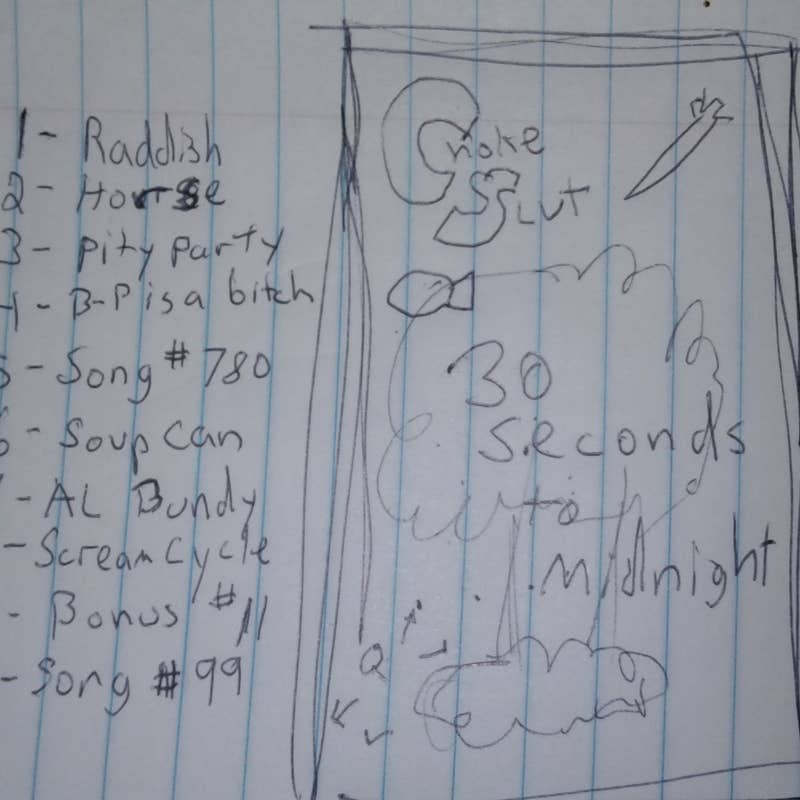 1 - Raddish
2 - Horse
3 - Pity party
4 - B-P is a bitch
5 - Song #780
6 - Soup Can
- AL Bundy
- Scream Cycle
- Bonus #11
- Song #99
Smoke
Slut
30
Seconds
to
Midnight